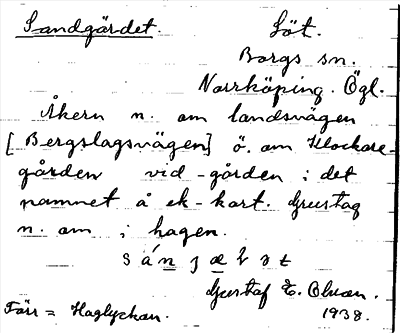 Sandgärdet. Löt.
Borgs sn.
Norrköping. Ögl.
Åkern n. om landsvägen
[Bergslagsvägen] ö. om Klockare-
gården vid -gården i det
namnet å ek-kart. Grustag
n. om i hagen.
Gustaf E. Olsson.
1938.
Förr = Haglyckan.